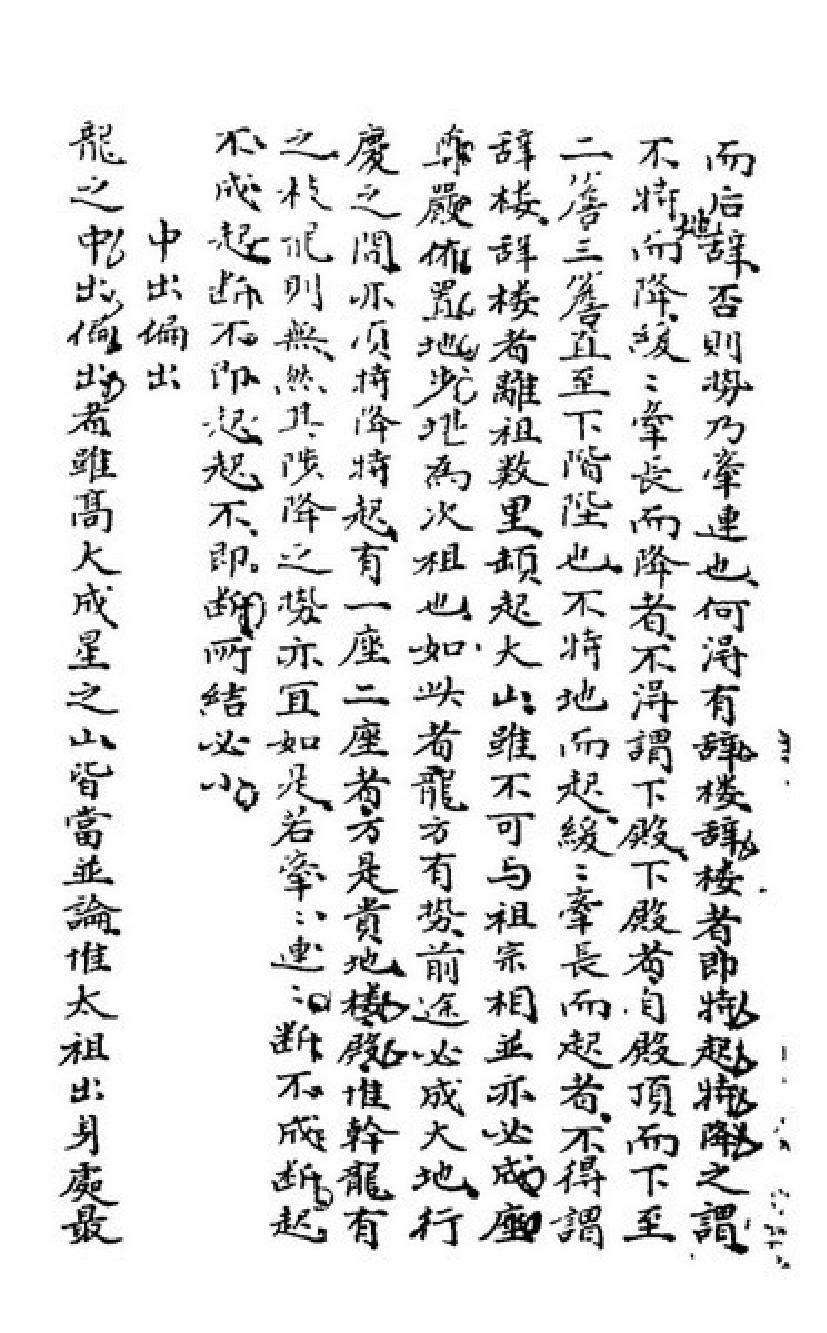 而后辞否则势乃牵連也何淂有辞楼辞楼者即特起特降之謂
不特地而降緩〻牽長而降者不淂謂下殿下殿者自殿頂而下至
二簷三簷直至下階陛也不特地而起緩〻牽長而起者不得謂
辞楼辞楼者離祖数里頓起大山雖不可与祖宗相並亦必成座
尊嚴佈置地步堪為次祖也如此者龍方有势前途必成大地行
度之間亦湏特降特起有一座二座者方是貴地楼殿惟幹龍有
之枝能则無然其陟降之势亦宜如是若牽〻連〻断不成断起
不成起断不即起起不即断所結必小
中出偏出
龍之中出偏出者雖高大成星之山皆當並論惟太祖出身處最